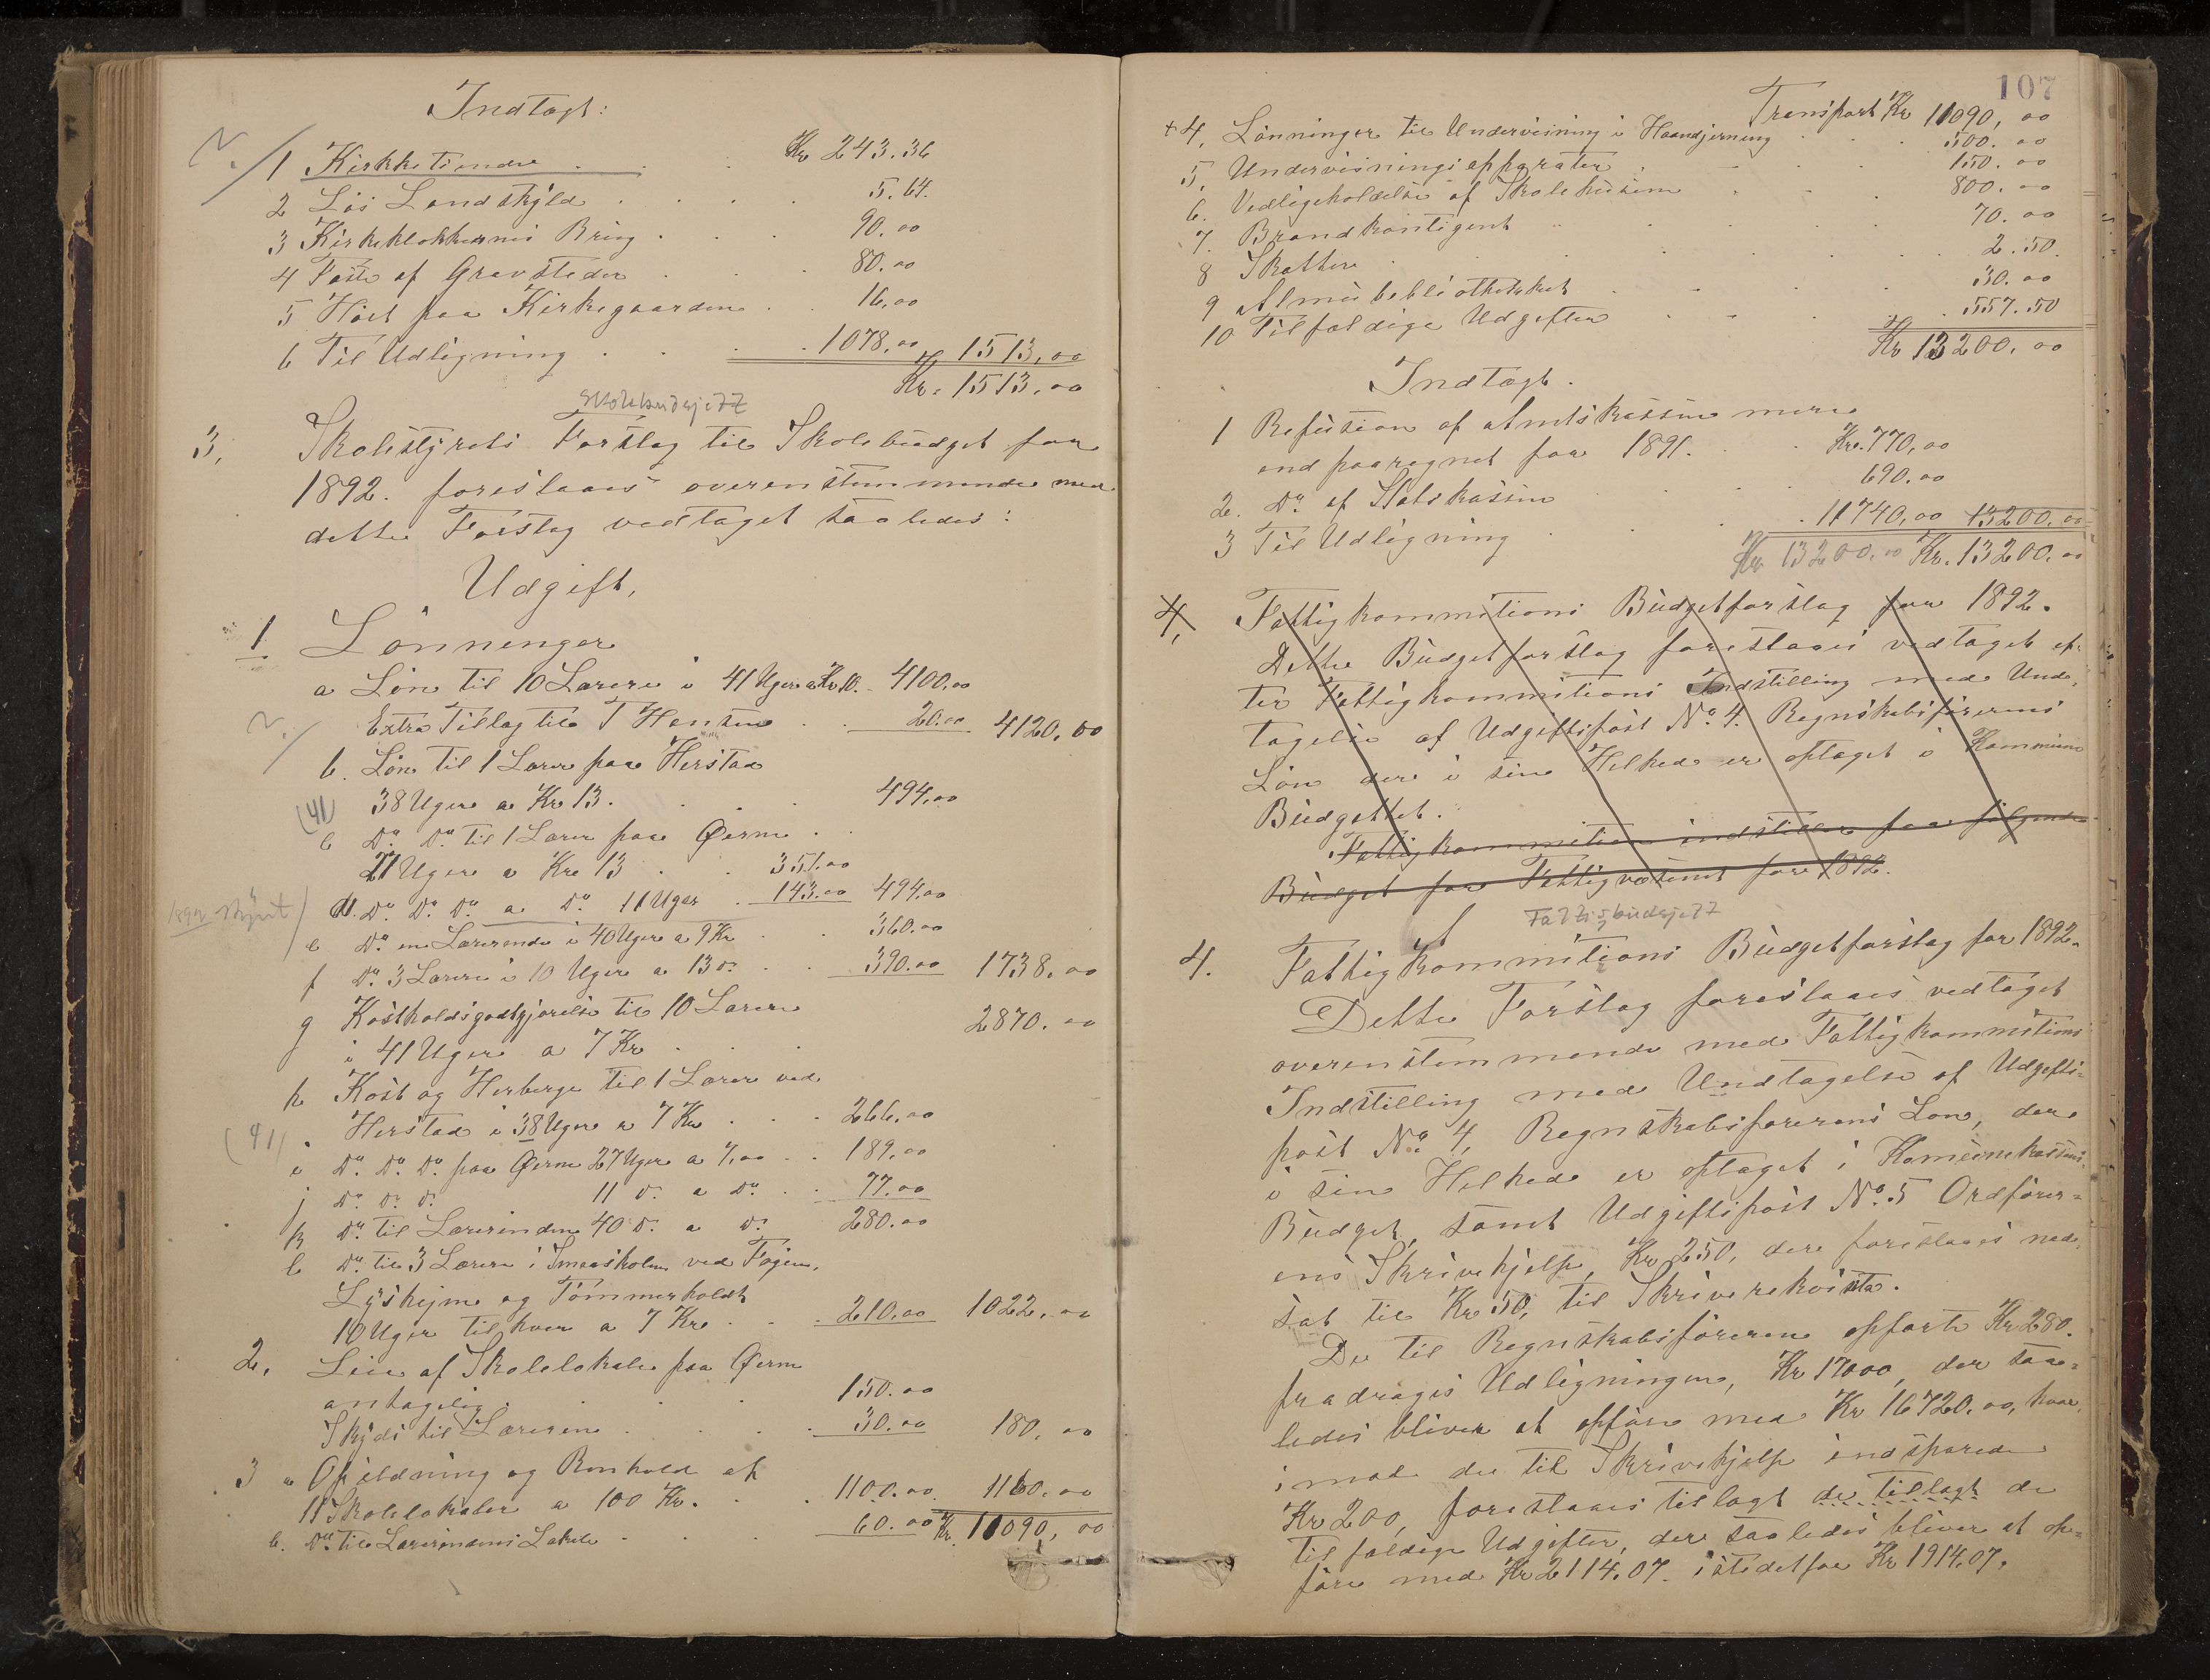 Indtægt:
1 Kirketiende . . . Kr 243.36
2 Løs Landskyld . . . . 5.64.
3 Kirkeklokkernes Bring . . . 90.00
4 Fæste af Gravsteder . . . 80.00
5 Høst paa Kirkegaarden . . 16,00
6 Til Udligning . . . . 1078,00 Kr 1513,00
Kr. 1513.00
Skolebudsjett
3, Skolestyrets Forslag til Skolebudget for
1892. foreslaaes overenstemmende med
dette Forslag vedtaget saaledes:
Udgift,
1 Lønninger
a Løn til 10 Lærere i 41 Uger a Kr 10. - 4100,00
Extra Tillæg til T Hansen . . 20.00 4120,00
b. Løn til 1 Lærer paa Herstad
(41) 38 Uger a Kr 13. . . . 494,00
c Do Do til 1 Lærer paa Øerne . .
27 Uger a Kr 13 . . 351.00
1892 skjønt d. Do Do Do a Do 11 Uger . 143.00 494.00
e Do en Lærerinde i 40 Uger a 9 Kr . . 360.00
f Do 3 Lærere i 10 Uger a 13 Do . . 390.00 1738.00
g Kostholdsgodtgjørelse til 10 Lærere
i 41 Uger a 7 Kr . . . 2870.00
h Kost og Herberge til 1 Lærer ved
(41) Herstad i 38 Uger a 7 Kr . . . 266,00
i Do Do Do paa Øerne 27 Uger a 7,00 . . 189,00
j Do Do Do 11 Do a Do . . 77.00
k Do til Lærerinden 40 Do a Do 280.00
l Do til 3 Lærere i Smaaskolen ved Fagern,
Lyshejm og Tømmerholdt
10 Uger til hver a 7 Kr . . . 210.00 1022.00
2, Leie af Skolelokaler paa Øerne
antagelig . . . 150.00
Skyds til Læreren . . . . 30.00 180,00
3 a Opildning og Renhold af
11 Skolelokaler a 100 Kr. . . 1100.00. 1160.00
b. Do til Lærerindens Lokale . . . 60.00 Kr. 11090,00
107
Transport Kr 11090,00
+ 4, Lønninger til Undervisning i Haandgjerning . . . 500.00
5, Undervisningsapparater . . . 150.00
6. Vedligeholdelse af Skolehusene . . . 800.00
7. Brandkontigent . . . . 70.00
8 Skatter . . . . . . 2.50.
9 Almuebibliotheket . . . . 30.00
10 Tilfældige Udgifter . . . . 557.50
Kr 13200.00
Indtægt.
1 Refusion af Amtskassen mere
end paaregnet for 1891. . . Kr. 770,00
2. Do af Statskassen . . . 690.00
3 Til Udligning . . . 11740,00 13200.00
Kr 13200.00 Kr. 13200.00
4, Fattigkommitions Budgetforslag for 1892.
Dette Budgetforslag foreslaaes vedtaget ef-
ter Fattigkommitions Indstilling med Und-
tagelse af Udgiftspost No 4. Regnskabsførerens
Løn der i sin Helhed er optaget i Kommune
Budgettet.
Fattigkommition indstiller for følgende
Budget for Fattigvæsenet for 1892.
Fattigbudsjett
4. Fattigkommitions Budgetforslag for 1892.
Dette Forslag foreslaaes vedtaget
overenstemmende med Fattigkommitions
Indstilling med Undtagelse af Udgifts-
post No 4, Regnskabsførerens Løn, der
i sin Helhed er optaget i Komunekassens
Budget, samt Udgiftspost No 5 Ordfører-
ens Skrivehjelp, Kr 250, der foreslaaes ned-
sat til Kr 50, til Skriverekvisita.
De til Regnskabsføreren opførte Kr 280.
fradrages Udligningen, Kr 17000, der saa-
ledes bliver at opføre med Kr 16720.00, hvor-
imod de til Skrivehjelp indsparede
Kr 200, foreslaaes tillagt de tillagt de
tilfældige Udgifter, der saaledes bliver at op-
føre med Kr 2114.07. istedetfor Kr 1914.07.